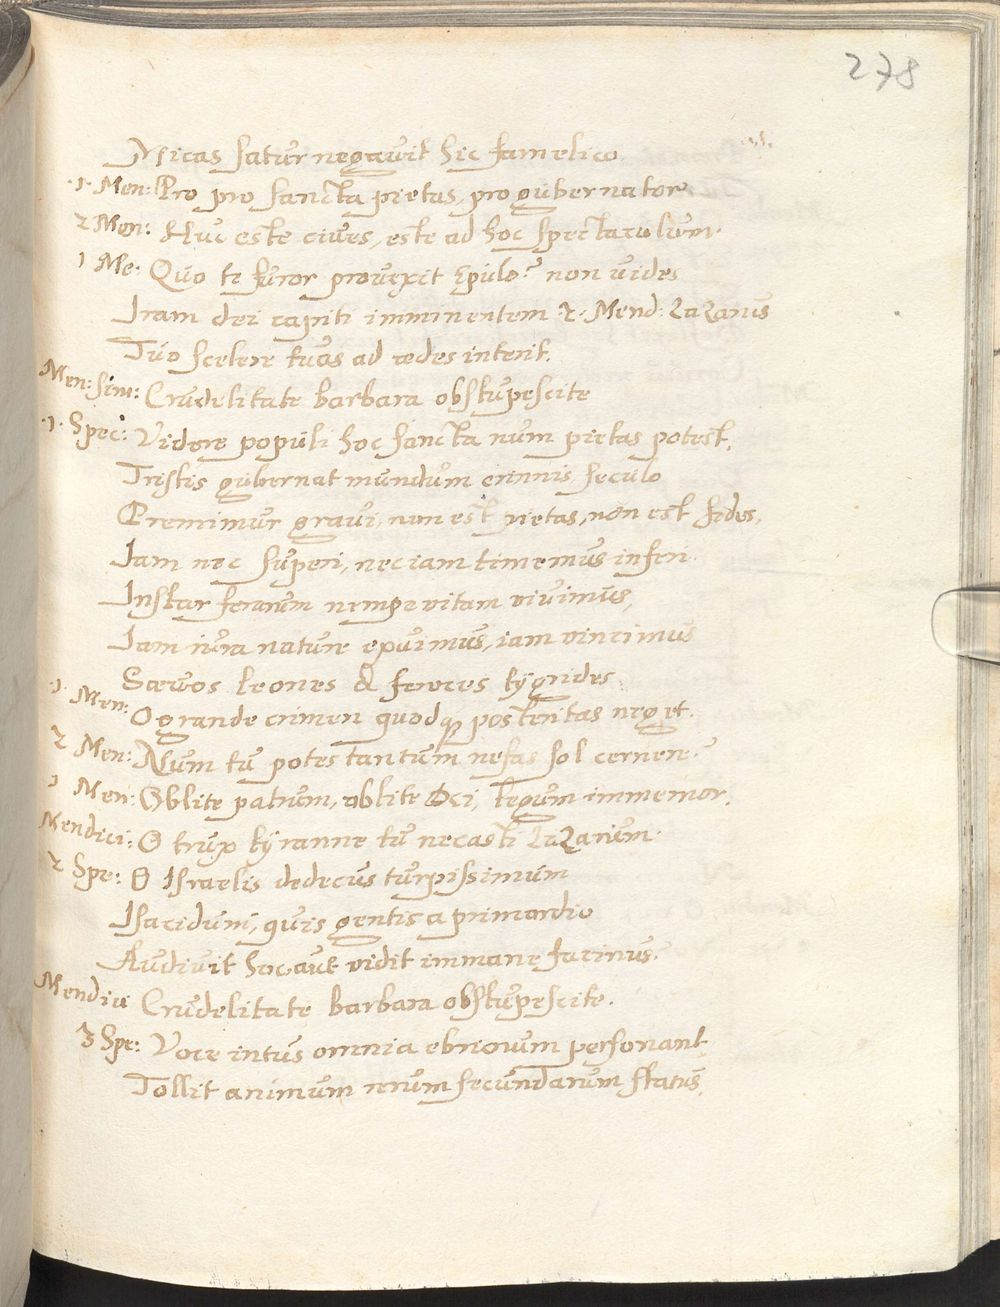 278
Micas satur negavit hic famelico
·1· Men: Pro pro sancta pietas, pro gubernator
2 Men: Huc este cives, este ad hoc spectaculum.
1 Me: Quo te furor provexit Epulo? non vides
Iram dei capiti imminentem 2. Mend: Lazarus
Tuo scelere tuas ad ædes interit.
Men: sim: Crudelitate barbara obstupescite
·1· Spec: Videre populi hoc sancta num pietas potest,
Tristis gubernat mundum erinnis, seculo
Premimur gravi, non est pietas, non est fides,
Iam nec superi, nec iam timemus inferi
Instar ferarum nempe vitam vivimus,
Iam iura nature exuimus, iam vincimus
Sævos leones & feroces tygrides.
·1· Men: O grande crimen quodq posteritas neget.
2 Men: Num tu potes tantum nefas sol cernere?
1 Men: Oblite patrum, oblite Dei, legum immemor,
Mendici: O trux tyranne tu necasti Lazarum.
2 Spe: O Israelis dedecus turpissimum
Isacidum, quis gentis a primordio
Audivit hoc, aut vidit immane facinus?
Mendici Crudelitate barbara obstupescite.
3 Spe: Voce intus omnia ebriorum personant
Tollit animum rerum secundarum status,